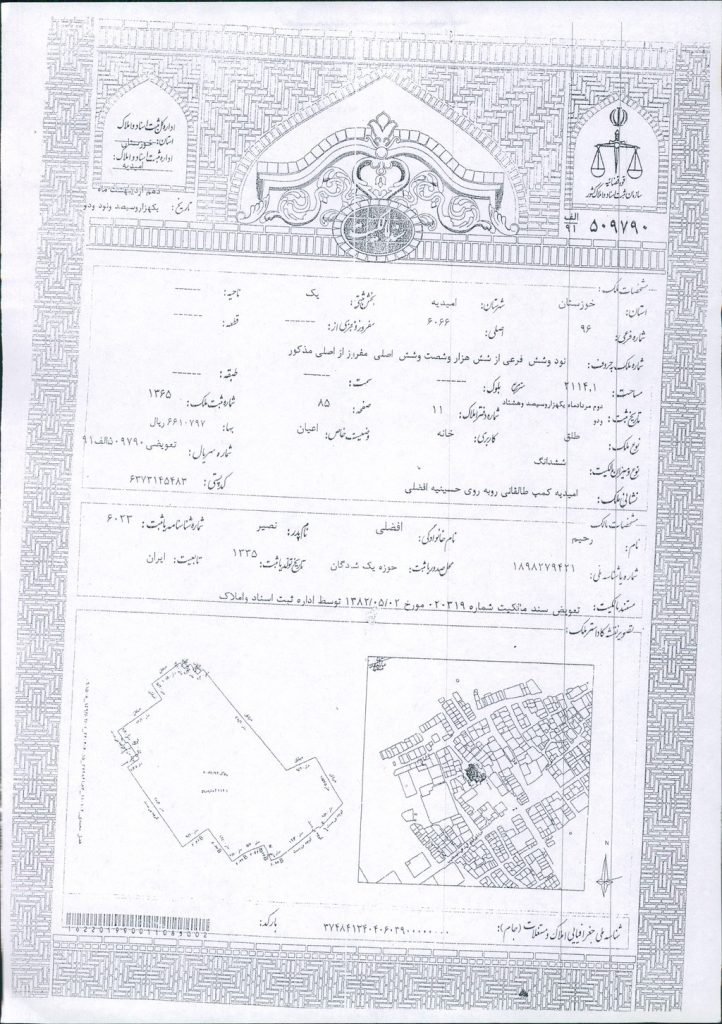 اداره کل ثبت اسناد و املاک
استان: خوزستان
اداره ثبت اسناد و املاک:
امیدیه
دهم اردیبهشت ماه
تاریخ: یکهزاروسیصد ونود ودو
قوه قضائیه
سازمان ثبت اسناد و املاک کشور
الف
۹۱
۵۰۹۷۹۰
سند مالکیت
مشخصات ملک:
استان: خوزستان شهرستان: امیدیه بخش ثبتی: یک ناحیه: ------
شماره فرعی: ۹۶ اصلی: ۶۰۶۶ مفروز و مجزی از: ------ قطعه: ------
شماره ملک بحروف: نود وشش فرعی از شش هزار وشصت وشش اصلی مفروز از اصلی مذکور
مساحت: ۲۱۱۴.۱ مترمربع بلوک: ------ سمت: ------ طبقه: ------
تاریخ ثبت: دوم مردادماه یکهزاروسیصد وهشتاد ودو شماره دفتر املاک: ۱۱ صفحه: ۸۵ شماره ثبت ملک: ۱۳۶۵
نوع ملک: طلق کاربری: خانه وضعیت خاص: اعیان بها: ۶۶۱۰۷۹۷ ریال
نوع و میزان مالکیت: ششدانگ شماره سریال: تعویضی۵۰۹۷۹۰الف۹۱
نشانی ملک: امیدیه کمپ طالقانی روبه روی حسینیه افضلی کدپستی: ۶۳۷۳۱۴۵۴۸۳
مشخصات مالک:
نام: رحیم نام خانوادگی: افضلی نام پدر: نصیر شماره شناسنامه یا ثبت: ۶۰۲۳
شماره یا شناسه ملی: ۱۸۹۸۲۷۹۴۲۱ محل صدور یا ثبت: حوزه یک شدگان تاریخ تولد یا ثبت: ۱۳۳۵ تابعیت: ایران
مستند مالکیت: تعویض سند مالکیت شماره ۰۲۰۳۱۹ مورخ ۱۳۸۲/۰۵/۰۲ توسط اداره ثبت اسناد واملاک
تصویر نقشه کاداستر ملک:
N
شناسه ملی جغرافیایی املاک و مستغلات (جام): ۳۷۴۸۴۱۳۴۰۴۰۶۰۳۹۰۰۰۰۰۰۰۰ بارکد:
162201990011089002